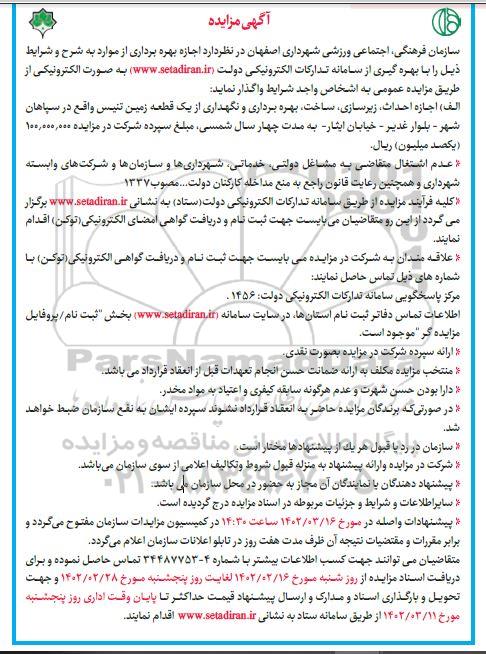 آگهی مزایده
سازمان فرهنگی، اجتماعی ورزشی شهرداری اصفهان در نظردارد اجازه بهره برداری از موارد به شرح و شرایط
ذیل را با بهره گیری از سامانه تدارکات الکترونیکی دولت (www.setadiran.ir) به صورت الکترونیکی از
طریق مزایده عمومی به اشخاص واجد شرایط واگذار نماید:
الف) اجازه احداث، زیرسازی، ساخت، بهره برداری و نگهداری از یک قطعه زمین تنیس واقع در سپاهان
شهر - بلوار غدیر - خیابان ایثار- به مدت چهار سال شمسی، مبلغ سپرده شرکت در مزایده ۱۰۰,۰۰۰,۰۰۰
(یکصد میلیون) ریال.
* عدم اشتغال متقاضی به مشاغل دولتی، خدماتی، شهرداری‌ها و سازمان‌ها و شرکت‌های وابسته
شهرداری و همچنین رعایت قانون راجع به منع مداخله کارکنان دولت...مصوب۱۳۳۷
* کلیه فرآیند مزایده از طریق سامانه تدارکات الکترونیکی دولت(ستاد) به نشانی www.setadiran.ir برگزار
می گردد از این رو متقاضیان می‌بایست جهت ثبت نام و دریافت گواهی امضای الکترونیکی(توکن) اقدام
نمایند.
* علاقه مندان به شرکت در مزایده می بایست جهت ثبت نام و دریافت گواهی الکترونیکی(توکن) با
شماره های ذیل تماس حاصل نمایند:
مرکز پاسخگویی سامانه تدارکات الکترونیکی دولت: ۱۴۵۶ .
اطلاعات تماس دفاتر ثبت نام استان‌ها، در سایت سامانه (www.setadiran.ir) بخش "ثبت نام/پروفایل
مزایده گر "موجود است.
* ارائه سپرده شرکت در مزایده بصورت نقدی.
* منتخب مزایده مکلف به ارائه ضمانت حسن انجام تعهدات قبل از انعقاد قرارداد می باشد.
* دارا بودن حسن شهرت و عدم هرگونه سابقه کیفری و اعتیاد به مواد مخدر.
* در صورتی‌که برندگان مزایده حاضر به انعقاد قرارداد نشوند سپرده ایشان به نفع سازمان ضبط خواهد
شد.
* سازمان در رد یا قبول هر یك از پیشنهادها مختار است.
* شرکت در مزایده وارائه پیشنهاد به منزله قبول شروط وتکالیف اعلامی از سوی سازمان می‌باشد.
* پیشنهاد دهندگان یا نمایندگان آن مجاز به حضور در محل سازمان می باشد.
* سایراطلاعات و شرایط و جزئیات مربوطه در اسناد مزایده درج گردیده است.
* پیشنهادات واصله در مورخ ۱۴۰۲/۰۳/۱۶ ساعت ۱۴:۳۰ در کمیسیون مزایدات سازمان مفتوح می‌گردد و
برابر مقررات و مقتضیات نتیجه آن ظرف مدت هفت روز در تابلو اعلانات سازمان اعلام می‌گردد.
متقاضیان می توانند جهت کسب اطلاعات بیشتر با شماره ۴-۳۴۴۸۷۷۵۳ تماس حاصل نموده و برای
دریافت اسناد مزایده از روز شنبه مورخ ۱۴۰۲/۰۲/۱۶ لغایت روز پنجشنبه مورخ ۱۴۰۲/۰۲/۲۸ و جهت
تحویل و بارگذاری اسناد و مدارک و ارسال پیشنهاد قیمت حداکثر تا پایان وقت اداری روز پنجشنبه
مورخ ۱۴۰۲/۰۳/۱۱ از طریق سامانه ستاد به نشانی www.setadiran.ir اقدام نمایند.